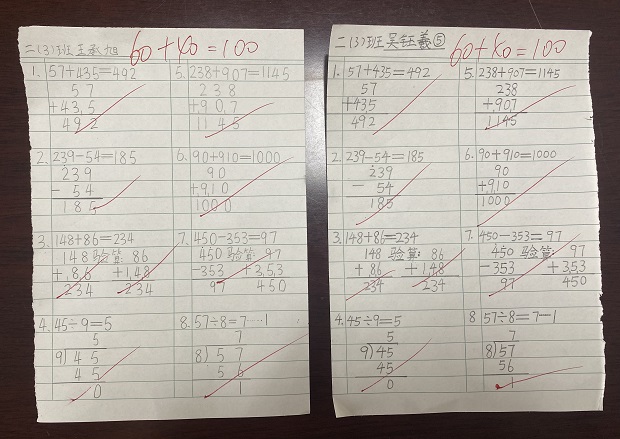 二(3)班王承旭 60+40=100
1. 57+435=492
57
+435
492
5. 238+907=1145
238
+907
1145
2. 239-54=185
239
- 54
185
6. 90+910=1000
90
+910
1000
3. 148+86=234
148 验算: 86
+86 +148
234 234
7. 450-353=97
450 验算: 97
-353 +353
97 450
4. 45÷9=5
5
9)45
45
0
8. 57÷8=7····1
7
8)57
56
1
二(3)班吴钰羲⑤ 60+40=100
1. 57+435=492
57
+435
492
5. 238+907=1145
238
+907
1145
2. 239-54=185
239
- 54
185
6. 90+910=1000
90
+910
1000
3. 148+86=234
148 验算: 86
+86 +148
234 234
7. 450-353=97
450 验算: 97
-353 +353
97 450
4. 45÷9=5
5
9)45
45
0
8 57÷8=7—1
7
8)57
56
1